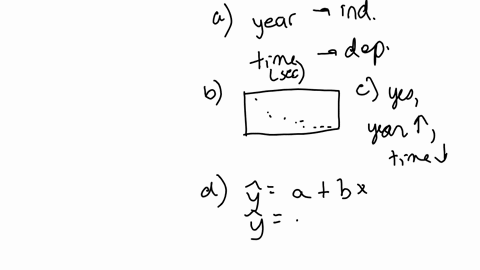 a) year → ind.
time (sec) → dep.
b)
c) yes,
year ↑,
time ↓
d) ŷ = a + bx
ŷ = .